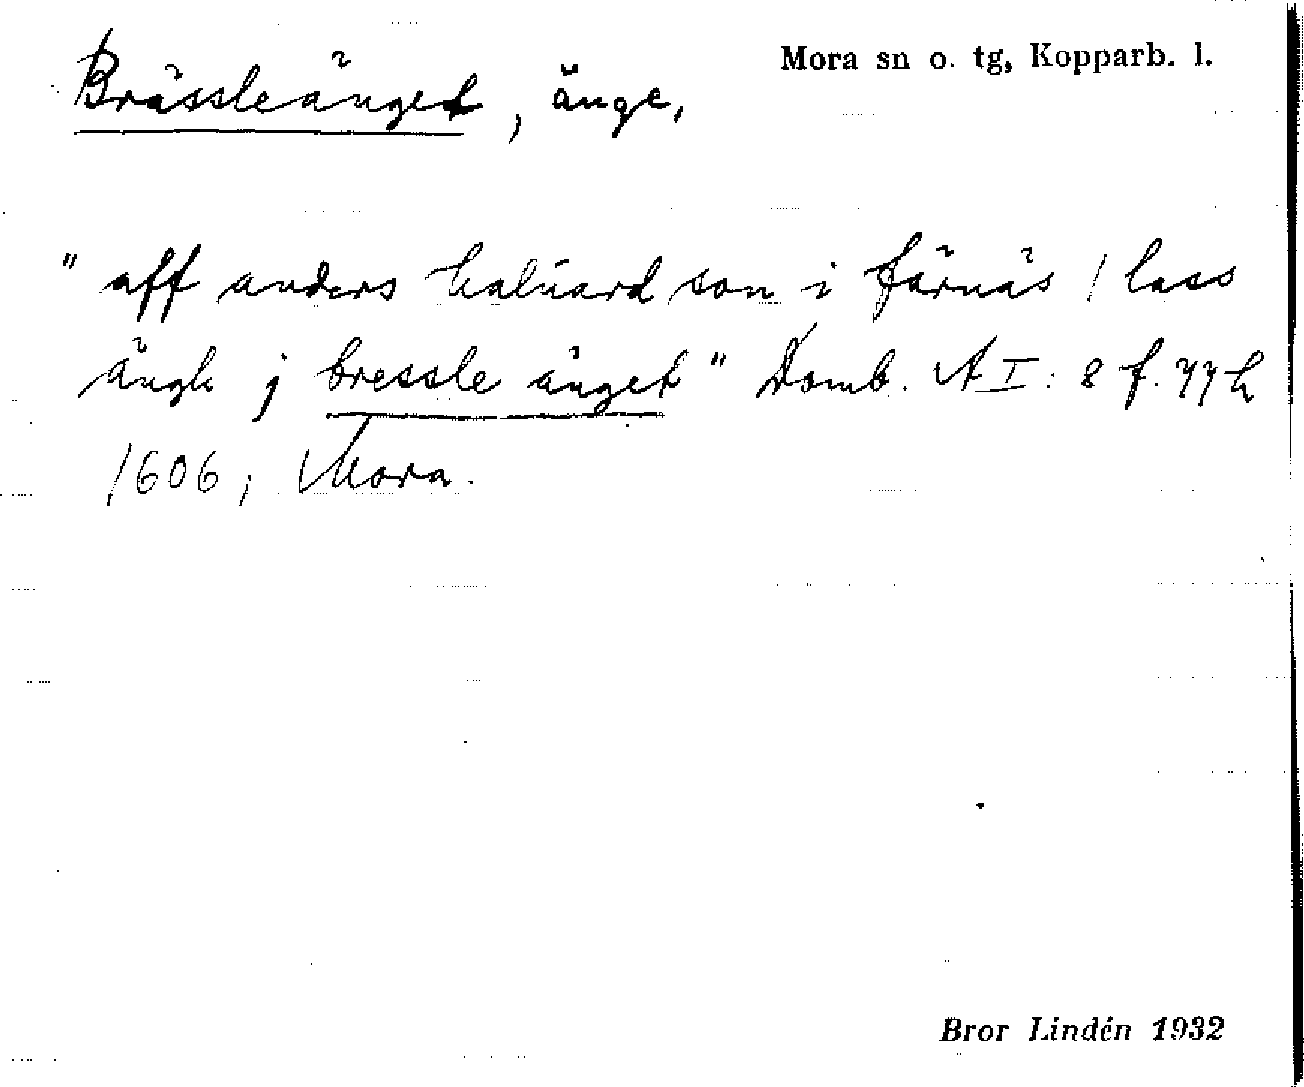 Mora sn o. tg, Kopparb. l.
Brässleänget, änge,
"aff anders haluard son i färnäs 1 lass
ängh j bressle änget" Domb. A I: 8 f. 77 h
1606; Mora.
Bror Lindén 1932